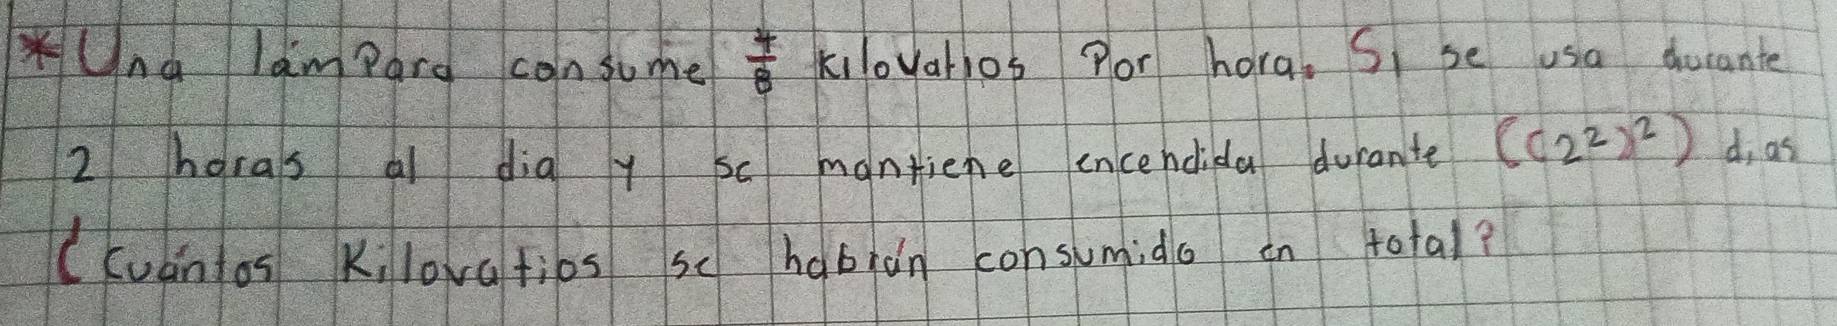 *Una lámpara consume 4/8 kilovatios por hora. Si se usa durante
2 horas al dia y se mantiene encendida durante ((2²)²) dias
¿cuántos kilovatios se habrán consumido en total?